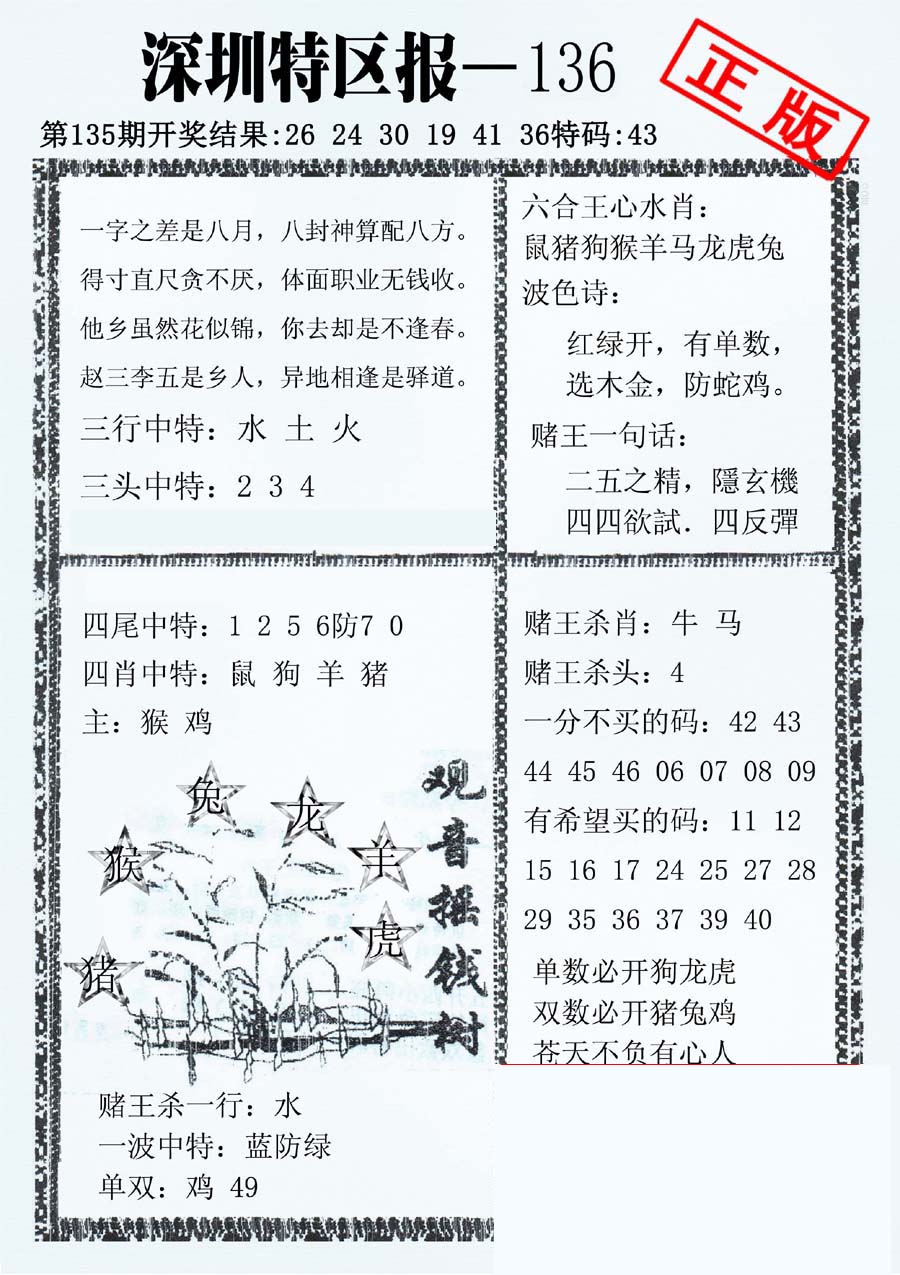 深圳特区报—136
正版
第135期开奖结果:26 24 30 19 41 36特码:43
一字之差是八月，八封神算配八方。
得寸直尺贪不厌，体面职业无钱收。
他乡虽然花似锦，你去却是不逢春。
赵三李五是乡人，异地相逢是驿道。
三行中特：水 土 火
三头中特：2 3 4
六合王心水肖：
鼠猪狗猴羊马龙虎兔
波色诗：
红绿开，有单数，
选木金，防蛇鸡。
赌王一句话：
二五之精，隱玄機
四四欲試．四反彈
四尾中特：1 2 5 6防7 0
四肖中特：鼠 狗 羊 猪
主：猴 鸡
兔
龙
猴
羊
虎
猪
观音摇钱树
赌王杀一行：水
一波中特：蓝防绿
单双：鸡 49
赌王杀肖：牛 马
赌王杀头：4
一分不买的码：42 43
44 45 46 06 07 08 09
有希望买的码：11 12
15 16 17 24 25 27 28
29 35 36 37 39 40
单数必开狗龙虎
双数必开猪兔鸡
苍天不负有心人